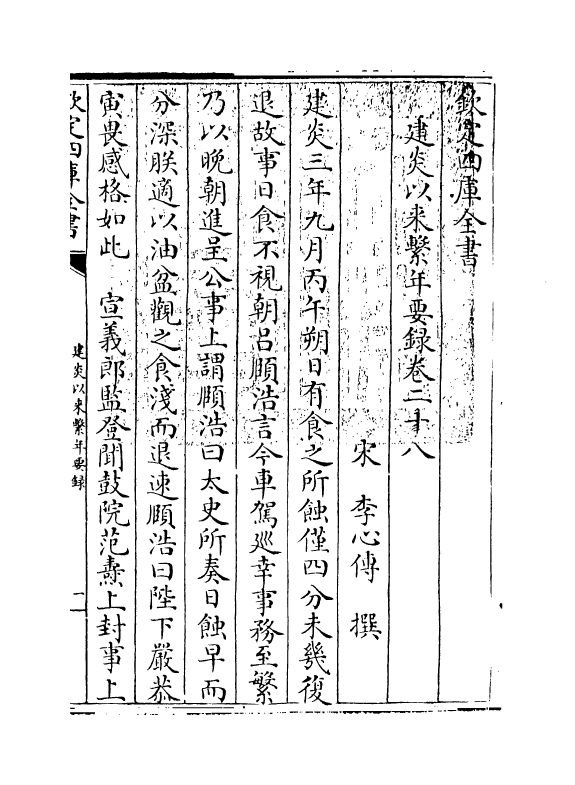 欽定四庫全書
建炎以來繫年要錄卷二十八
宋 李心傳 撰
建炎三年九月丙午朔日有食之所蝕僅四分未幾復
退故事日食不視朝呂頤浩言今車駕巡幸事務至繁
乃以晚朝進呈公事上謂頤浩曰太史所奏日蝕早而
分深朕適以油盆觀之食淺而退速頤浩曰陛下嚴恭
寅畏感格如此 宣義郎監登聞鼓院范燾上封事上
欽定四庫全書
建炎以來繫年要錄